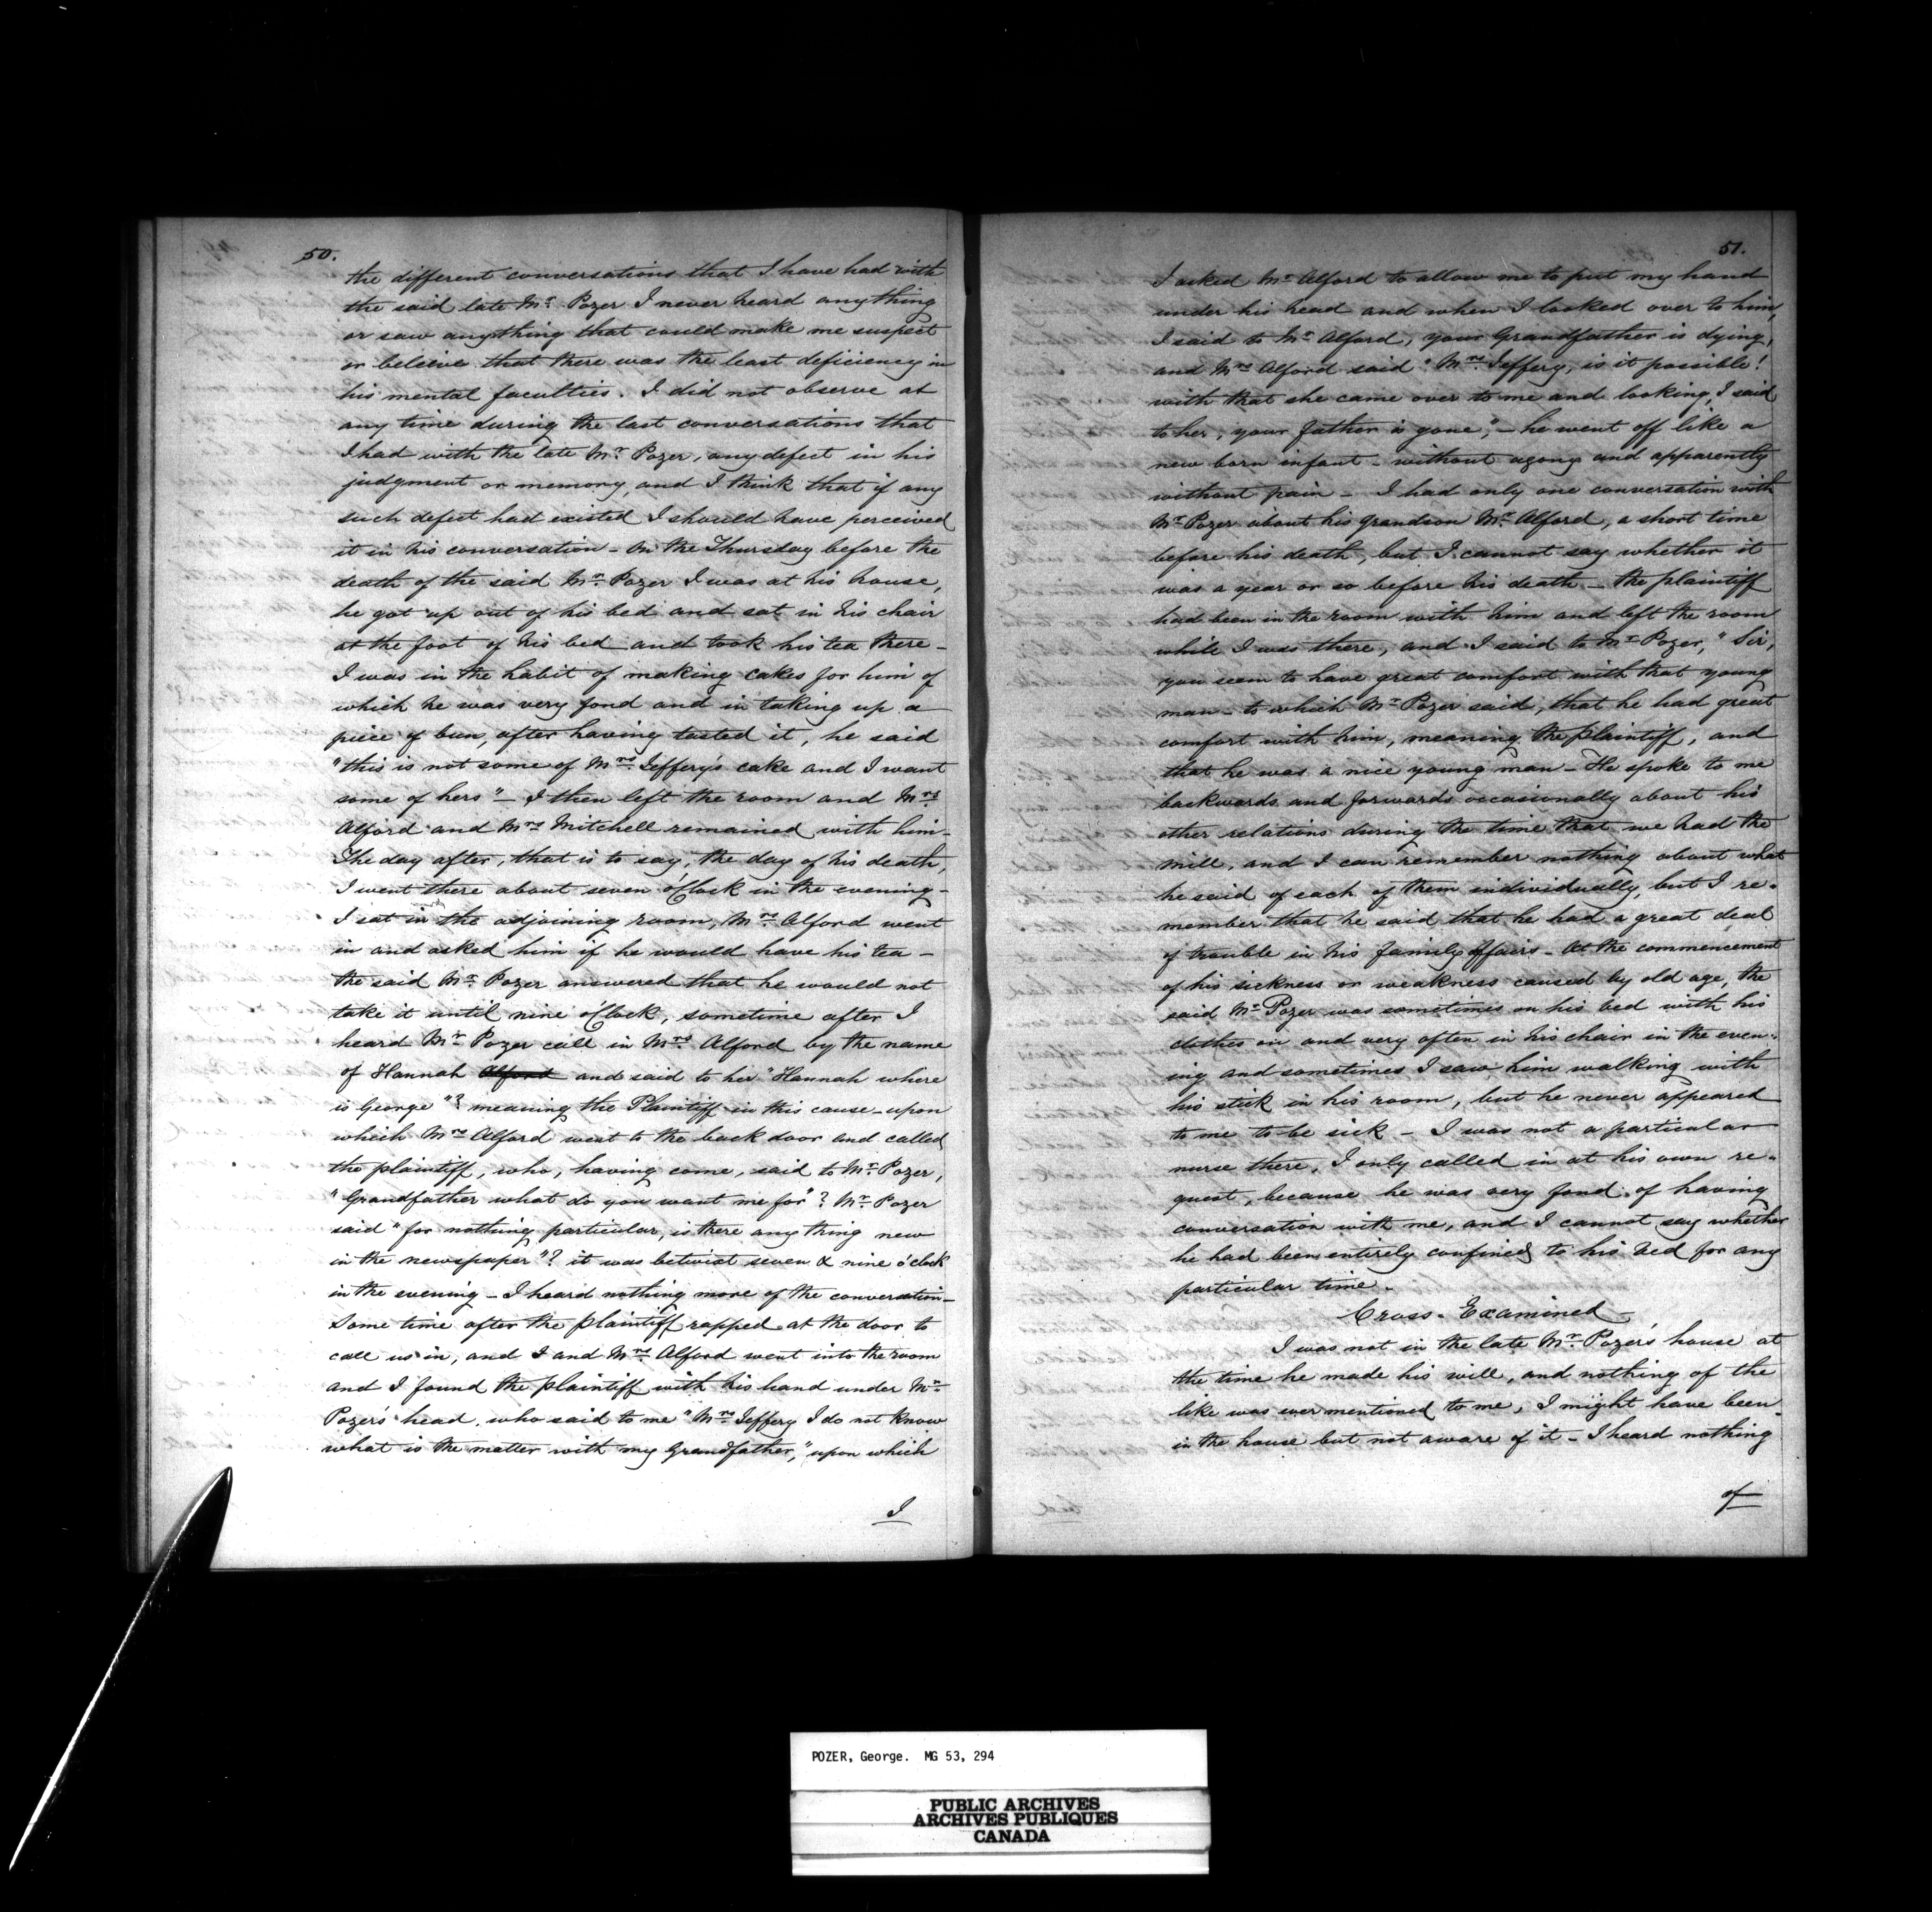 50.
the different conversations that I have had with
the said late Mr. Pozer I never heard anything
or saw anything that could make me suspect
or beleive that there was the least deficiency in
his mental faculties. I did not observe at
any time during the last conversations that
I had with the late Mr. Pozer, any defect in his
judgment or memory, and I think that if any
such defect had existed I should have perceived
it in his conversation - On the Thursday before the
death of the said Mr. Pozer I was at his house,
he got up out of his bed and sat in his chair
at the foot of his bed and took his tea there -
I was in the habit of making cakes for him of
which he was very fond and in taking up a
piece of bun, after having tasted it, he said
"this is not some of Mrs. Jeffery's cake and I want
some of hers" - I then left the room and Mrs.
Alford and Mrs. Mitchell remained with him -
The day after, that is to say, the day of his death,
I went there about seven o'Clock in the evening -
I sat in the adjoining room, Mrs. Alford went
in and asked him if he would have his tea -
the said Mr. Pozer answered that he would not
take it until nine o'Clock, sometime after I
heard Mr. Pozer call in Mrs. Alford by the name
of Hannah Alford and said to her "Hannah where
is George"? meaning the Plaintiff in this cause - upon
which Mrs. Alford went to the back door and called
the plaintiff, who, having come, said to Mr. Pozer,
"Grandfather what do you want me for"? Mr. Pozer
said "for nothing particular, is there any thing new
in the newspaper"? it was betwixt seven & nine o'clock
in the evening - I heard nothing more of the conversation -
Some time after the plaintiff rapped at the door to
call us in, and I and Mrs. Alford went into the room
and I found the plaintiff with his hand under Mr.
Pozer's head, who said to me "Mrs. Jeffery I do not know
what is the matter with my Grandfather," upon which
I
51.
I asked Mr. Alford to allow me to put my hand
under his head and when I looked over to him,
I said to Mr. Alford, your Grandfather is dying,
and Mrs. Alford said "Mrs. Jeffery, is it possible!
with that she came over to me and looking, I said
to her, your father is gone," - he went off like a
new born infant - without agony and apparently
without pain - I had only one conversation with
Mr. Pozer about his grandson Mr. Alford, a short time
before his death, but I cannot say whether it
was a year or so before his death - the plaintiff
had been in the room with him and left the room
while I was there, and I said to Mr. Pozer, "Sir,
you seem to have great comfort with that young
man - to which Mr. Pozer said, that he had great
comfort with him, meaning the plaintiff, and
that he was a nice young man - He spoke to me
backwards and forwards occasionally about his
other relations during the time that we had the
mill, and I can remember nothing about what
he said of each of them individually, but I re-
member that he said that he had a great deal
of trouble in his family affairs - At the commencement
of his sickness or weakness caused by old age, the
said Mr. Pozer was sometimes on his bed with his
clothes on and very often in his chair in the even-
ing and sometimes I saw him walking with
his stick in his room, but he never appeared
to me to be sick - I was not a particular
nurse there, I only called in at his own re-
quest, because he was very fond of having
conversation with me, and I cannot say whether
he had been entirely confined to his bed for any
particular time.
Cross-Examined
I was not in the late Mr. Pozer's house at
the time he made his will, and nothing of the
like was ever mentioned to me, I might have been
in the house but not aware of it - I heard nothing
of
POZER, George. MG 53, 294
PUBLIC ARCHIVES
ARCHIVES PUBLIQUES
CANADA